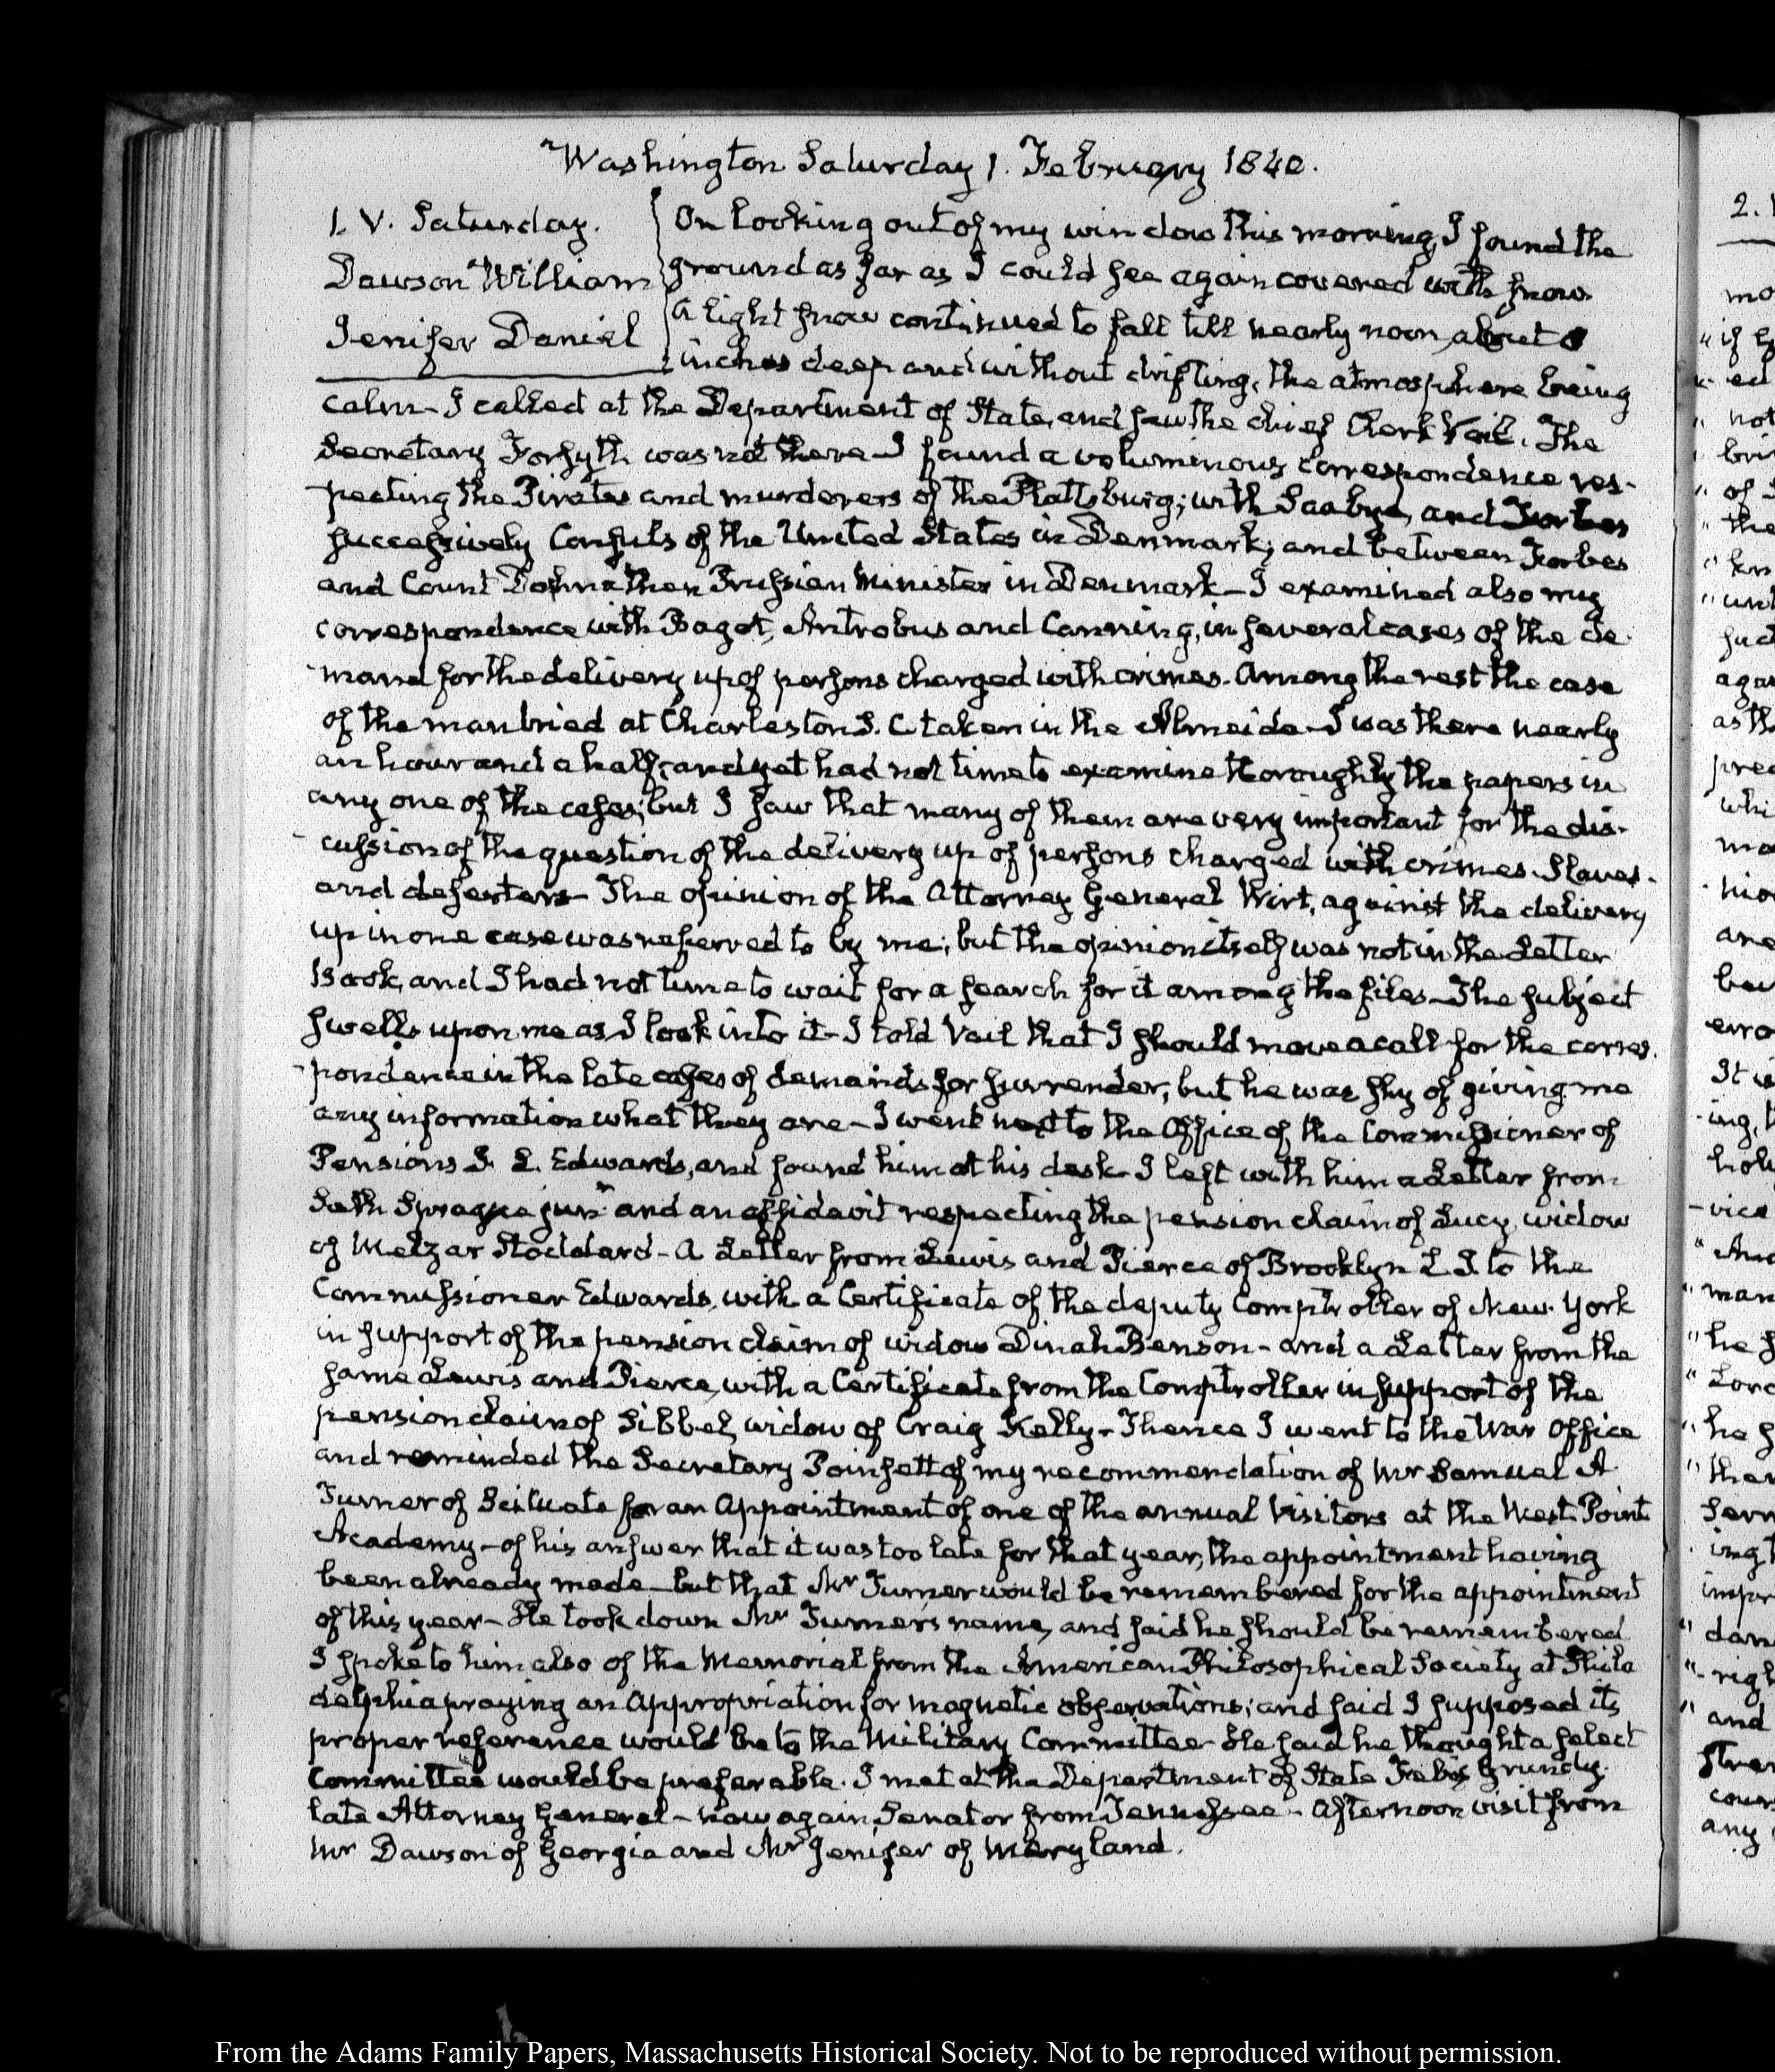 Washington Saturday 1. February 1840.
1. V. Saturday.
Dawson William
Jenifer Daniel
On looking out of my window this morning, I found the
ground as far as I could see again covered with snow
A light snow continued to fall till nearly noon, about
inches deep and without drifting, the atmosphere being
calm - I called at the Department of State, and saw the chief Clerk Vail. The
Secretary Forsyth was not there - I found a voluminous correspondence res-
-pecting the Pirates and murderers of the Plattsburg; with Saabye, and Forbes
successively Consuls of the United States in Denmark; and between Forbes
and Count Dohna then Prussian Minister in Denmark - I examined also my
correspondence with Bagot, Antrobus and Canning, in several cases of the de
-mand for the delivery up of persons charged with crimes. Among the rest the case
of the man tried at Charleston S. C taken in the Almeida - I was there nearly
an hour and a half; and yet had not time to examine thoroughly the papers in
any one of the cases; but I saw that many of them are very important for the dis-
-cussion of the question of the delivery up of persons charged with crimes. Slaves.
and deserters - The opinion of the Attorney General Wirt, against the delivery
up in one case was referred to by me; but the opinion itself was not in the Letter
Book, and I had not time to wait for a search for it among the files - The subject
swells upon me as I look into it - I told Vail that I should move a call for the corres.
-pondence in the late cases of demands for surrender, but he was shy of giving me
any information what they are - I went next to the Office of the Commissioner of
Pensions J. L. Edwards, and found him at his desk - I left with him a Letter from
Seth Sprague junr. and an affidavit respecting the pension claim of Lucy, widow
of Melzar Stoddard - A Letter from Lewis and Pierce of Brooklyn L. I. to the
Commissioner Edwards, with a Certificate of the deputy Comptroller of New-York
in support of the pension claim of widow Dinah Benson - and a Letter from the
same Lewis and Pierce, with a Certificate from the Comptroller in support of the
pension claim of Sibbel, widow of Craig Kelly - Thence I went to the War Office
and reminded the Secretary Poinsett of my recommendation of Mr Samuel A
Turner of Scituate for an Appointment of one of the annual Visitors at the West-Point
Academy - of his answer that it was too late for that year, the appointment having
been already made - but that Mr Turner would be remembered for the appointment
of this year - He took down Mr Turner's name, and said he should be remembered
I spoke to him also of the Memorial from the American Philosophical Society at Phila
delphia praying an Appropriation for magnetic observations; and said I supposed its
proper reference would be to the Military Committee - He said he thought a select
Committee would be preferable. I met at the Department of State Felix Grundy.
late Attorney General - now again Senator from Tennessee - Afternoon visit from
Mr Dawson of Georgia and Mr Jenifer of Maryland.
From the Adams Family Papers, Massachusetts Historical Society. Not to be reproduced without permission.